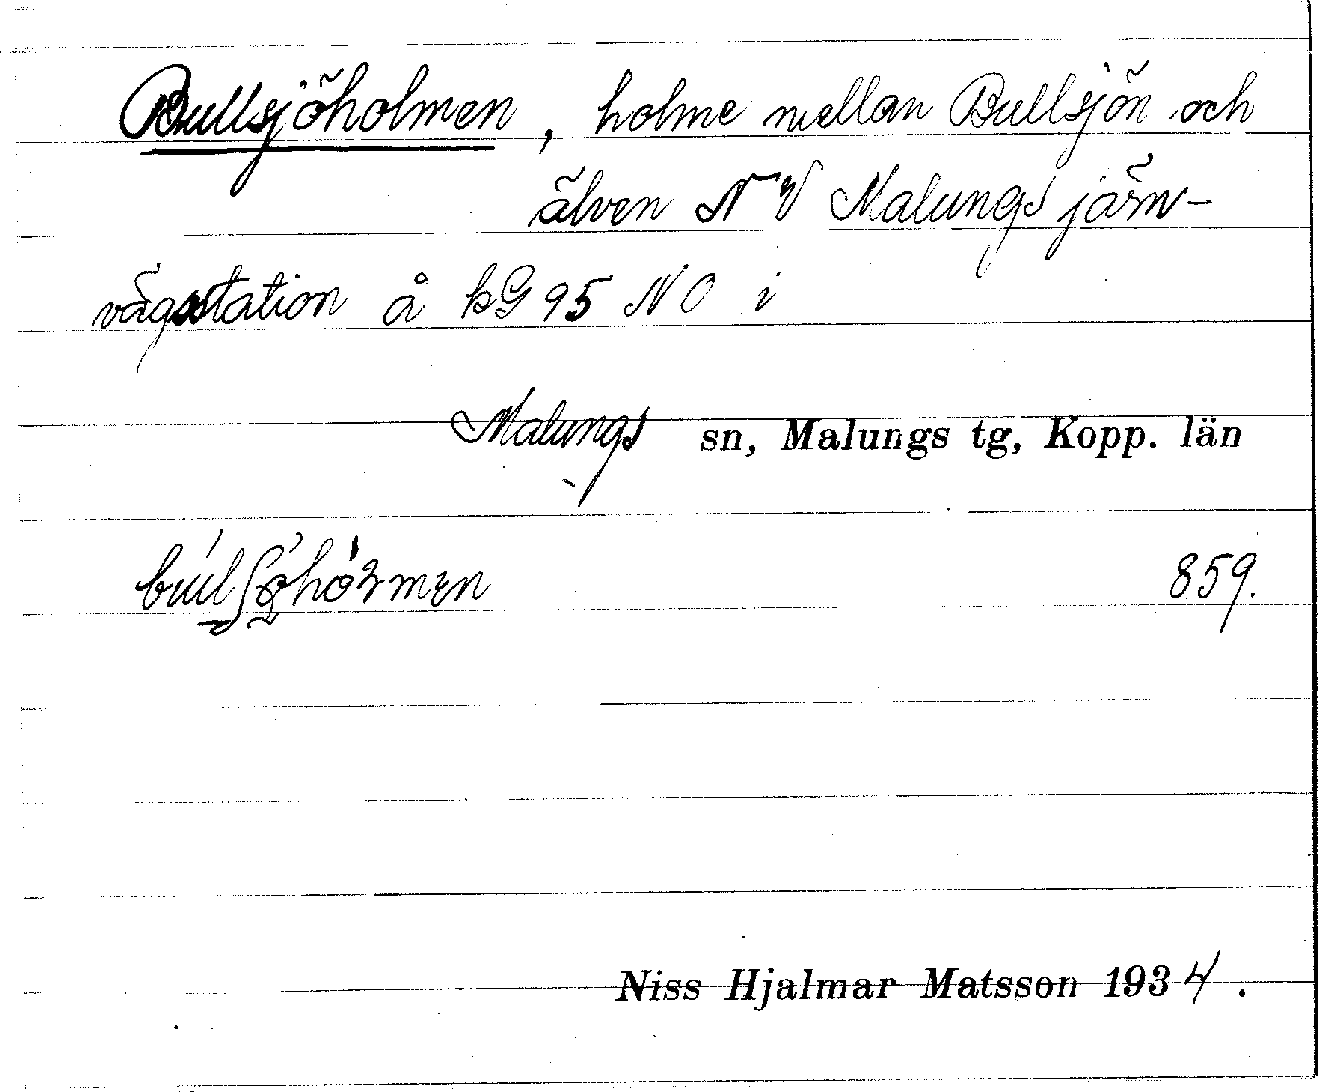 Bullsjöholmen, holme mellan Bullsjön och
älven NV Malungs järn-
vägsstation å kG 95 NO i
Malungs sn, Malungs tg, Kopp. län
859.
Niss Hjalmar Matsson 1934.